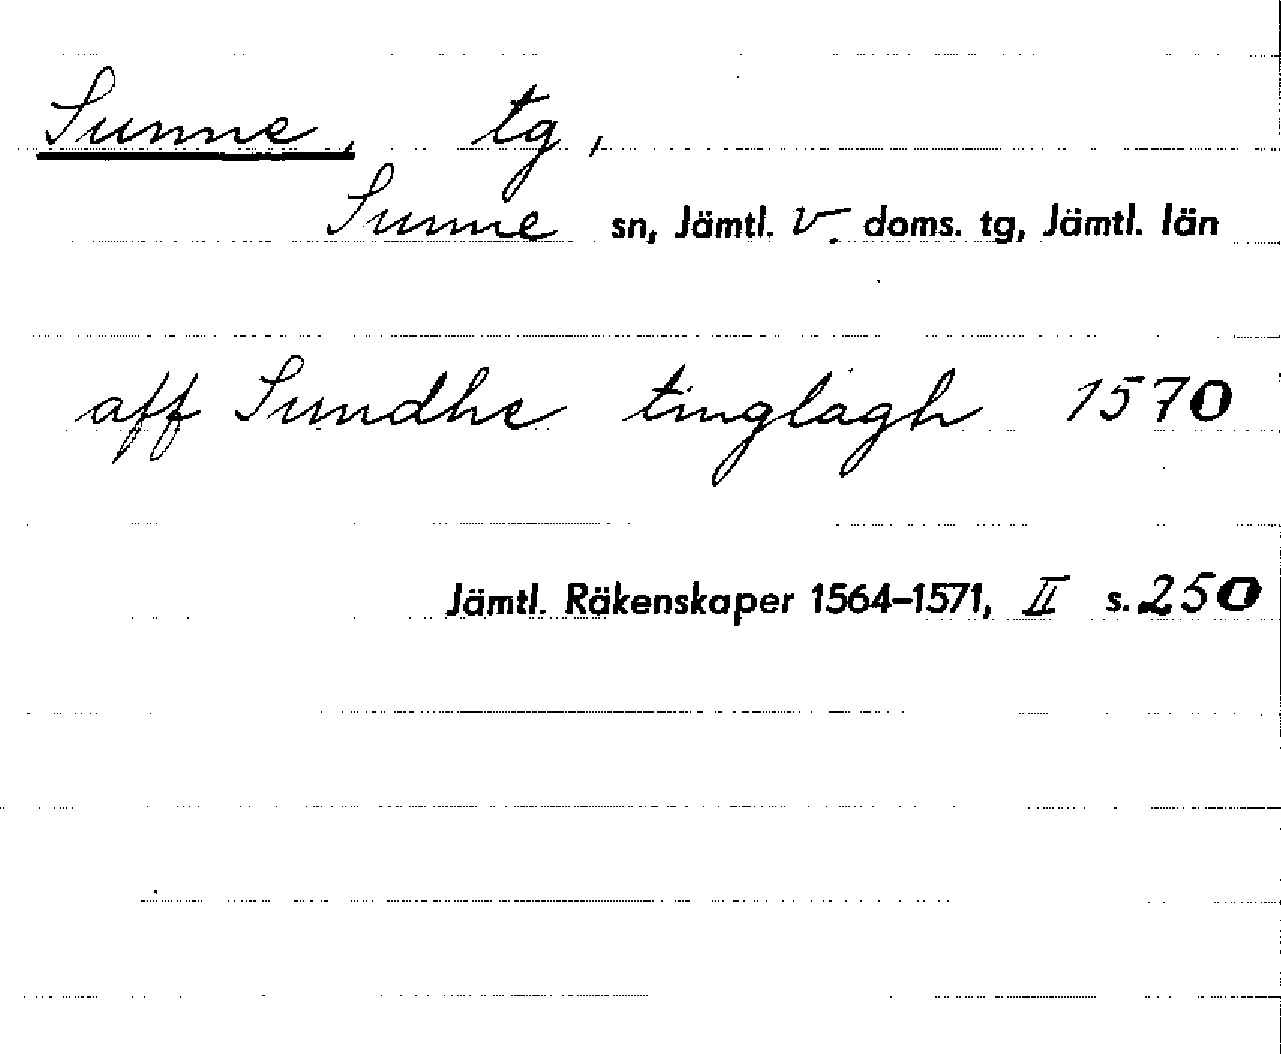 Sunne, tg,
Sunne sn, Jämtl. v. doms. tg, Jämtl. län
aff Sundhe tinglagh 1570
Jämtl. Räkenskaper 1564–1571, II s. 250